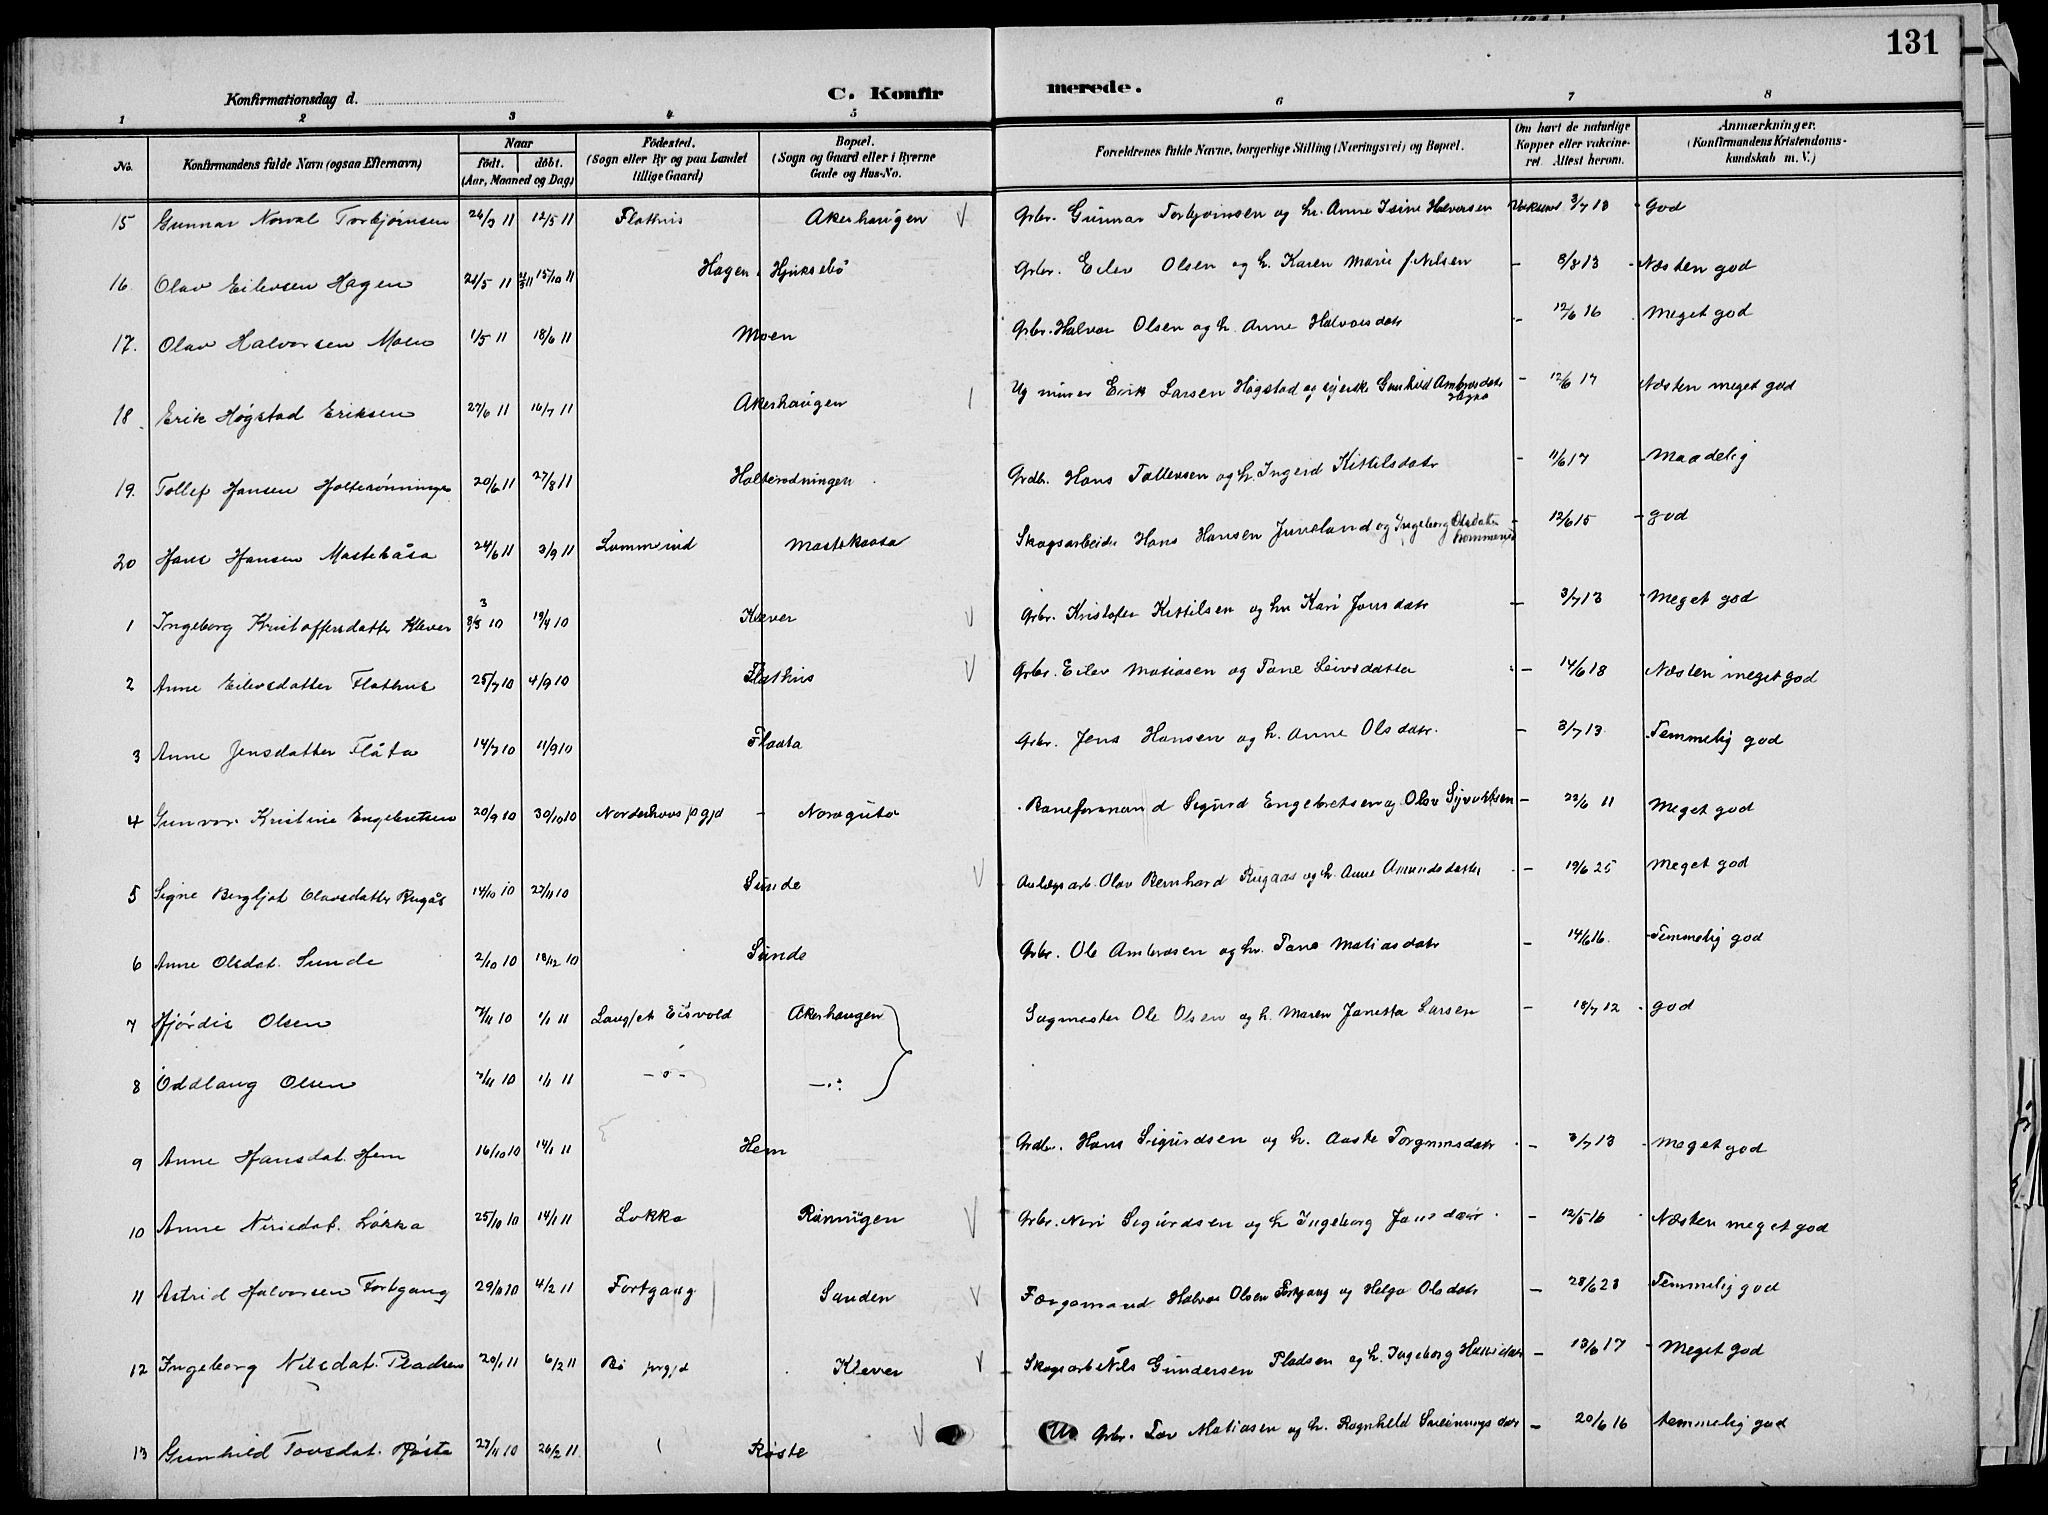 131
Konfirmationsdag d.
C. Konfirmerede.
1 2 3 4 5 6 7 8
No. Konfirmandens fulde Navn (ogsaa Efternavn) Naar födt. döbt. (Aar, Maaned og Dag) Födested. (Sogn eller By og paa Landet tillige Gaard) Bopæl. (Sogn og Gaard eller i Byerne Gade og Hus-No. Forældrenes fulde Navne, borgerlige Stilling (Næringsvei) og Bopæl. Om havt de naturlige Kopper eller vakcineret. Attest herom. Anmærkninger. (Konfirmandens Kristendomskundskab m. V.)
15 Gunnar Norval Torbjørnsen 24/3 11 12/5 11 Flathus Akerhaugen Grbr. Gunnar Torbjørnsen og h. Anne Isine Halvorsen 3/7 13 God
16 Olav Eilevsen Hagen 21/5 11 15/10 11 Hagen, Hjuksebö Grbr. Eilev Olsen og h. Karen Marie f. Nilsen – 8/8 13 Næsten god
17. Olav Halvorsen Moen 1/5 11 18/6 11 Moen Grbr. Halvor Olsen og h. Anne Halvorsdatr – 12/6 16 Meget god
18 Erik Høgstad Eriksen 27/6 11 16/7 11 Akerhaugen Ug miner Erik Larsen Høgstad og Gunhild – 12/6 17 Næsten meget god
19. Tollef Hansen 20/6 11 27/8 11 Holterødningen Grdb. Hans Tollevsen og h. Ingerd Kittilsdatr – 11/6 17 Maadelig
20 Hans Hansen Mastekåsa 24/6 11 3/9 11 Mastekaasa Skogsarbeider Hans Hansen og Ingeborg Olsdatter – 12/6 15 god
1 Ingeborg Kristoffersdatter Klever 10 19/4 10 Klever Grbr. Kristofer Kittilsen og h. Kari Jonsdatr – 3/7 13 Meget god
2 Anne Eilevsdatter Flathus 25/7 10 4/9 10 Flathus Grbr. Eilev Matiasen og Tone Leivsdatter – 14/6 18 Næsten meget god
3 Anne Jensdatter Flåta 14/7 10 11/9 10 Flaata Grbr. Jens Hansen og h. Anne Olsdatr. – 3/7 13 Temmelig god
4 Gunvor Kristine Engebretsen 20/9 10 30/10 10 Norderhovs prgjd – Noragutu Baneformand Sigurd Engebretsen og Olav – 22/6 11 Meget god
5 Signe Bergljot Olavsdatter Rugås 14/10 10 27/11 10 Sunde Anlægsarb. Olav Bernhard Rugaas og h. Anne Amundsdatter – 19/6 25 Meget god
6 Anne Olsdat. Sunde 2/10 10 18/12 10 Sunde Grbr. Ole Ambrosen og h. Tone Matiasdatr – 14/6 16. Temmelig god
7 Hjördis Olsen 7/11 10 1/1 11 Eisvold Akerhaugen Sagmester Ole Olsen og h. Maren Janetta Larsen – 18/7 12 god
8 Oddlaug Olsen 7/11 10 1/1 11 –"– –"–
9 Anne Hansdat. Hem 16/10 10 14/1 11 Hem Grdbr. Hans Sigurdsen og h. Aaste Torgrimsdatr – 3/7 13 Meget god
10 Anne Nirisdat. Løkka 25/10 10 14/1 11 Løkka Rönningen Grbr. Neri Sigurdsen og h Ingeborg Jonsdatr – 12/5 16 Næsten meget god
11 Astrid Halvorsen Fortgang 29/10 10 4/2 11 Fortgang Sanden Færgemand Halvor Olsen Fortgang og Helga Olsdatr – 28/6 23 Temmelig god
12 Ingeborg Nilsdat. Pladsen 20/1 11 6/2 11 Bö prgjd Klever Skogsarb Nils Gundersen Pladsen og h. Ingeborg – 13/6 17 Meget god
13 Gunhild Tovsdat. Røste 27/11 10 26/2 11 Røste Grbr. Tov Matiasen og h. Ragnhild Sveinungsdatr – 20/6 16 temmelig god